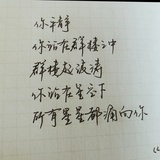 你平静
你站在群楼之中
群楼起波涛
你站在星空下
所有星星都涌向你